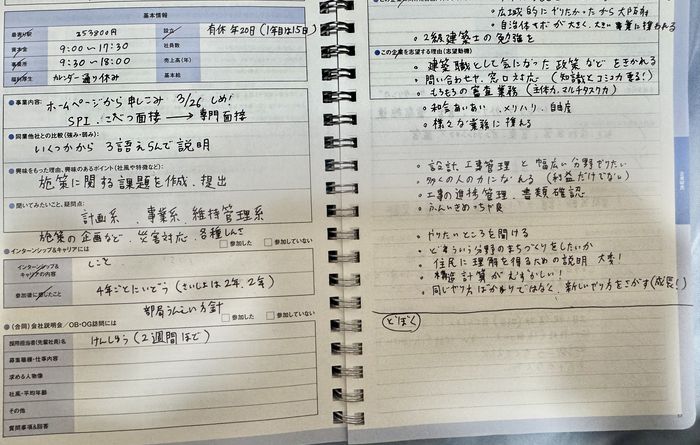 基本情報
最寄り駅 253800円 設立 有休 年20日(1年目は15日)
資本金 9:00〜17:30 社員数
事業所 9:30〜18:00 売上高(年)
福利厚生 カレンダー通り休み 基本給
●事業内容: ホームページから申しこみ 3/26 しめ!
SPI こべつ面接 → 専門面接
●同業他社との比較(強み・弱み):
いくつかから 3語えらんで説明
●興味をもった理由、興味のあるポイント(社風や特徴など):
施策に関する課題を作成、提出
●聞いてみたいこと、疑問点:
計画系、事業系、維持管理系
施策の企画など、災害対応、各種しんさ
●インターンシップ&キャリアには □参加した □参加していない
インターンシップ&キャリアの内容 しごと
参加後に感じたこと 4年ごとにいどう(さいしょは2年、2年)
部局うんえい方針
●(合同)会社説明会/OB・OG訪問には □参加した □参加していない
採用担当者(先輩社員)名 けんしゅう(2週間ほど)
募集職種・仕事内容
求める人物像
社風・平均年齢
その他
質問事項&回答
・広域的にやりたかったから大阪府
・自治体サポが大きく、大きい事業に携われる
・2級建築士の勉強を
●この企業を志望する理由(志望動機)
・建築職として気になった政策などをきかれる
・問い合わせや、窓口対応(知識とコミュ力まる!)
・もろもろの審査業務(主体力、マルチタスク力)
・和気あいあい、メリハリ、自由度
・様々な業務に携える
・設計、工事管理と幅広い分野でやりたい
・多くの人の力になれる(利益だけでない)
・工事の進捗管理、書類確認
・ふんいきめっちゃ良
・やりたいところを聞ける
・どういう分野のまちづくりをしたいか
住民に理解を得るための説明 大変!
・構造計算がむずかしい!
・同じやり方ばかりではなく、新しいやり方をさがす(成長!)
どぼく